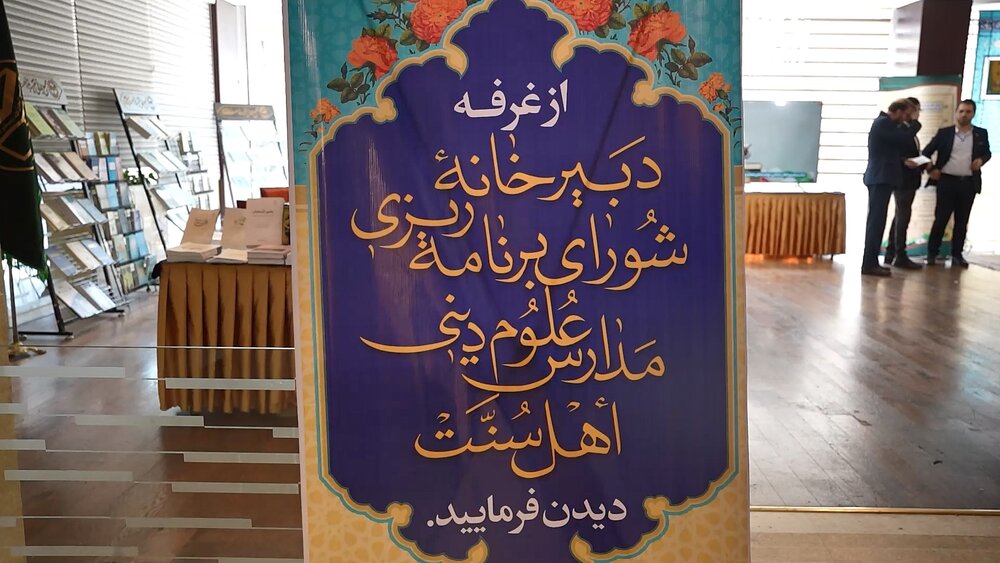 از غرفه
دَبیرخانهٔ
شُورای برنامهٔ ریزی
مَدارس عُلُوم دینی
أهل سُنَّت
دیدن فرمایید.